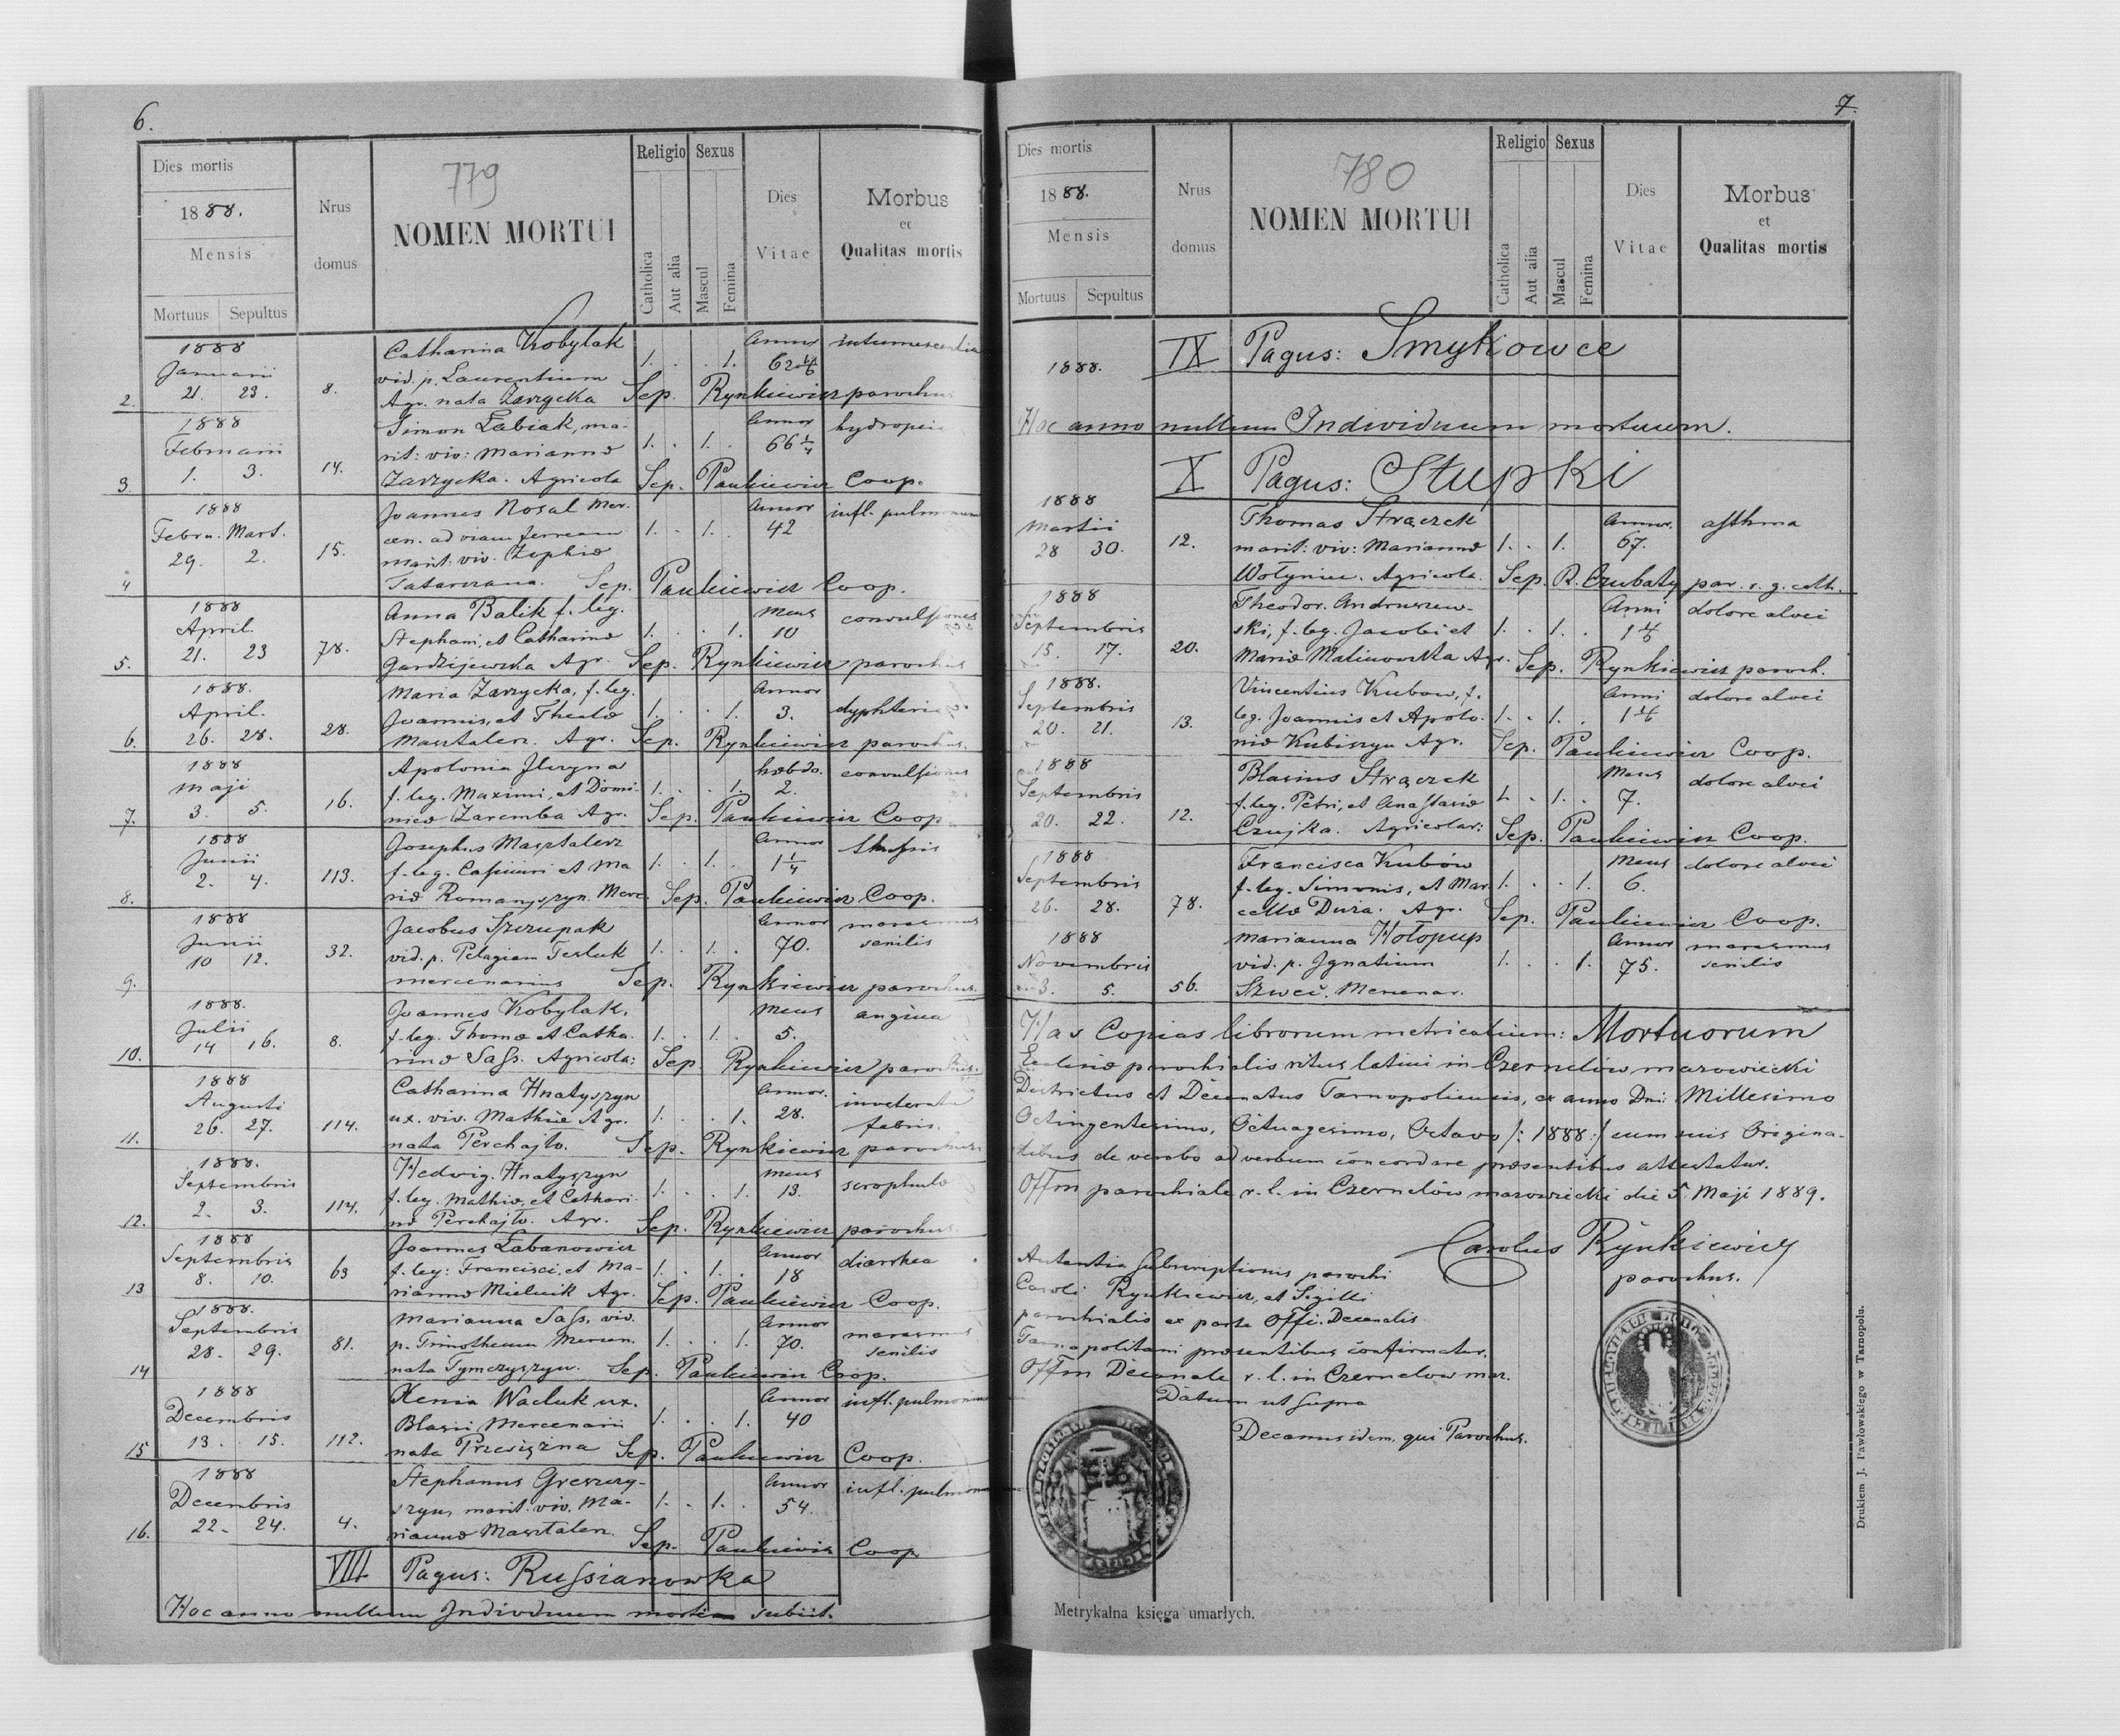 6.
779
Dies mortis
1888.
Mensis
Mortuus Sepultus
Nrus domus
NOMEN MORTUI
Religio
Catholica
Aut alia
Sexus
Mascul
Femina
Dies Vitae
Morbus et Qualitas mortis
1888 Catharina Kobylak Annor intumescentia
Januarii vid. p. Laurentium 1. . . 1. 62
2. 21. 23. 8. Agr. nata Zarzycka Sep. Rynkiewicz parochus
1888 Simon Łabiak, ma- Annor hydropsis
Februarii rit: viv: Mariannæ 1. . 1. . 66 1/4
3. 1. 3. 14. Zarzycka. Agricola Sep. Paukiewicz Coop.
1888 Joannes Nosal Mer- Annor infl. pulmonum
Febru. Mart. cen. ad viam ferream 1. . 1. . 42
29. 2. 15. marit. viv. Zophiæ
4 Tatarczana. Sep. Paukiewicz Coop.
1888 Anna Balik f. leg. Mens convulsiones
April. Stephani, et Catharinæ 1. . . 1. 10
5. 21. 23 78. Gardzijewska Agr. Sep. Rynkiewicz parochus
1888. Maria Zarzycka, f. leg. Annor
April. Joannis, et Theclæ 1. . . 1. 3. dyphteria
6. 26. 28. 28. Masztalerz. Agr. Sep. Rynkiewicz parochus.
1888 Apolonia hebdo. convulsiones
Maji f. leg. Maximi, et Domi- 1. . . 1. 2.
7. 3. 5. 16. nicæ Zaremba Agr. Sep. Paukiewicz Coop
1888 Josephus Masztalerz Annor
Junii f. leg. Casimiri et Ma 1. . 1. . 1 1/4
8. 2. 4. 113. riæ Romanyszyn. Merc. Sep. Paukiewicz Coop.
1888 Jacobus Szczupak Annor marasmus
Junii vid. p. Pelagiam Tesluk 1. . 1. . 70. senilis
9. 10 12. 32. mercenarius Sep. Rynkiewicz parochus.
1888. Joannes Kobylak, Mens angina
Julii f. leg. Thomæ et Catha- 1. . 1. . 5.
10. 14 16. 8. rinæ Sass. Agricola: Sep. Rynkiewicz parochus.
1888 Catharina Hnatyszyn Annor. inveterata
Augusti ux. viv. Mathiæ Agr. 1. . . 1. 28. febris.
11. 26. 27. 114. nata Perchajło. Sep. Rynkiewicz parochus.
1888. Hedwig. Hnatyszyn Mens
Septembris f. leg. Mathiæ, et Cathari- 1. . . 1. 13. scrophulæ
12. 2. 3. 114. næ Perchajło. Agr. Sep. Rynkiewicz parochus.
1888 Joannes Łabanowicz Annor diarrhea
Septembris f. leg: Francisci, et Ma- 1. . 1. . 18
13 8. 10. 63 riannæ Mielnik Agr. Sep. Paukiewicz Coop.
1888. Marianna Sass, viv. Annor marasmus
Septembris p. Timotheum Mercen. 1. . . 1. 70. senilis
14 28. 29. 81. nata Tymczyszyn. Sep. Paukiewicz Coop.
1888 Xenia Wacluk ux. Annor infl. pulmonum
Decembris Blasii Mercenarii 1. . . 1. 40
15 13. 15. 112. nata Sep. Paukiewicz Coop.
1888 Stephanus Greszczy- Annor infl. pulmonum
Decembris szyn, marit. viv. Ma- 1. . 1. . 54.
16. 22. 24. 4. riannæ Masztalerz. Sep. Paukiewicz Coop
VIII Pagus: Russianowka
Hoc anno nullum Individuum mortem subiit.
7.
780
Dies mortis
1888.
Mensis
Mortuus Sepultus
Nrus domus
NOMEN MORTUI
Religio
Catholica
Aut alia
Sexus
Mascul
Femina
Dies Vitae
Morbus et Qualitas mortis
1888. IX Pagus: Smykowce
Hoc anno nullum Individuum mortuum.
X Pagus: Stupki
1888 Thomas Strączek Annor. asthma
Martii marit: viv: Mariannæ 1. . 1. 67.
28 30. 12. Wołyniec. Agricola. Sep. R. Czubaty par. r. g. cath.
1888 Theodor. Andruszew- Anni dolore alvei
Septembris ski, f. leg. Jacobi et 1. . 1. .
15. 17. 20. Mariæ Malinowska Agr. Sep. Rynkiewicz paroch.
1888. Vincentius Kubow, f. Anni dolore alvei
Septembris leg. Joannis et Apolo- 1. . 1. .
20. 21. 13. niæ Kubiszyn Agr. Sep. Paukiewicz Coop.
1888 Blasius Strączek Mens dolore alvei
Septembris f. leg. Petri, et Anastasiæ 1. . 1. . 7.
20. 22. 12. Czujka. Agricolar: Sep. Paukiewicz Coop.
1888 Francisca Kubów Mens dolore alvei
Septembris f. leg. Simonis, et Mar- 1. . . 1. 6.
26. 28. 78. cellæ Duża. Agr. Sep. Paukiewicz Coop.
1888 Marianna Hołopup Annor marasmus
Novembris vid. p. Ignatium 1. . . 1. 75. senilis
3. 5. 56. Szweć. Mercenar.
Has Copias librorum metricalium: Mortuorum
Ecclesiæ parochialis ritus latini in Czernelów mazowiecki
Districtus et Decanatus Tarnopoliensis, ex anno Dni: Millesimo
Octingentesimo, Octuagesimo, Octavo /: 1888 :/ cum suis Origina-
libus de verbo ad verbum concordare præsentibus attestatur.
Offm parochiale r. l. in Czernelów mazowiecki die 5. Maji 1889.
Carolus Rynkiewicz
parochus.
Autentia subscriptionis parochi
Caroli Rynkiewicz, et Sigilli
parochialis ex parte Offi. Decanalis
Tarnopolitani præsentibus confirmatur.
Offm Decanale r. l. in Czernelow maz.
Datum ut supra
Decanus idem, qui Parochus.
Metrykalna księga umarłych.
Drukiem J. Pawłowskiego w Tarnopolu.